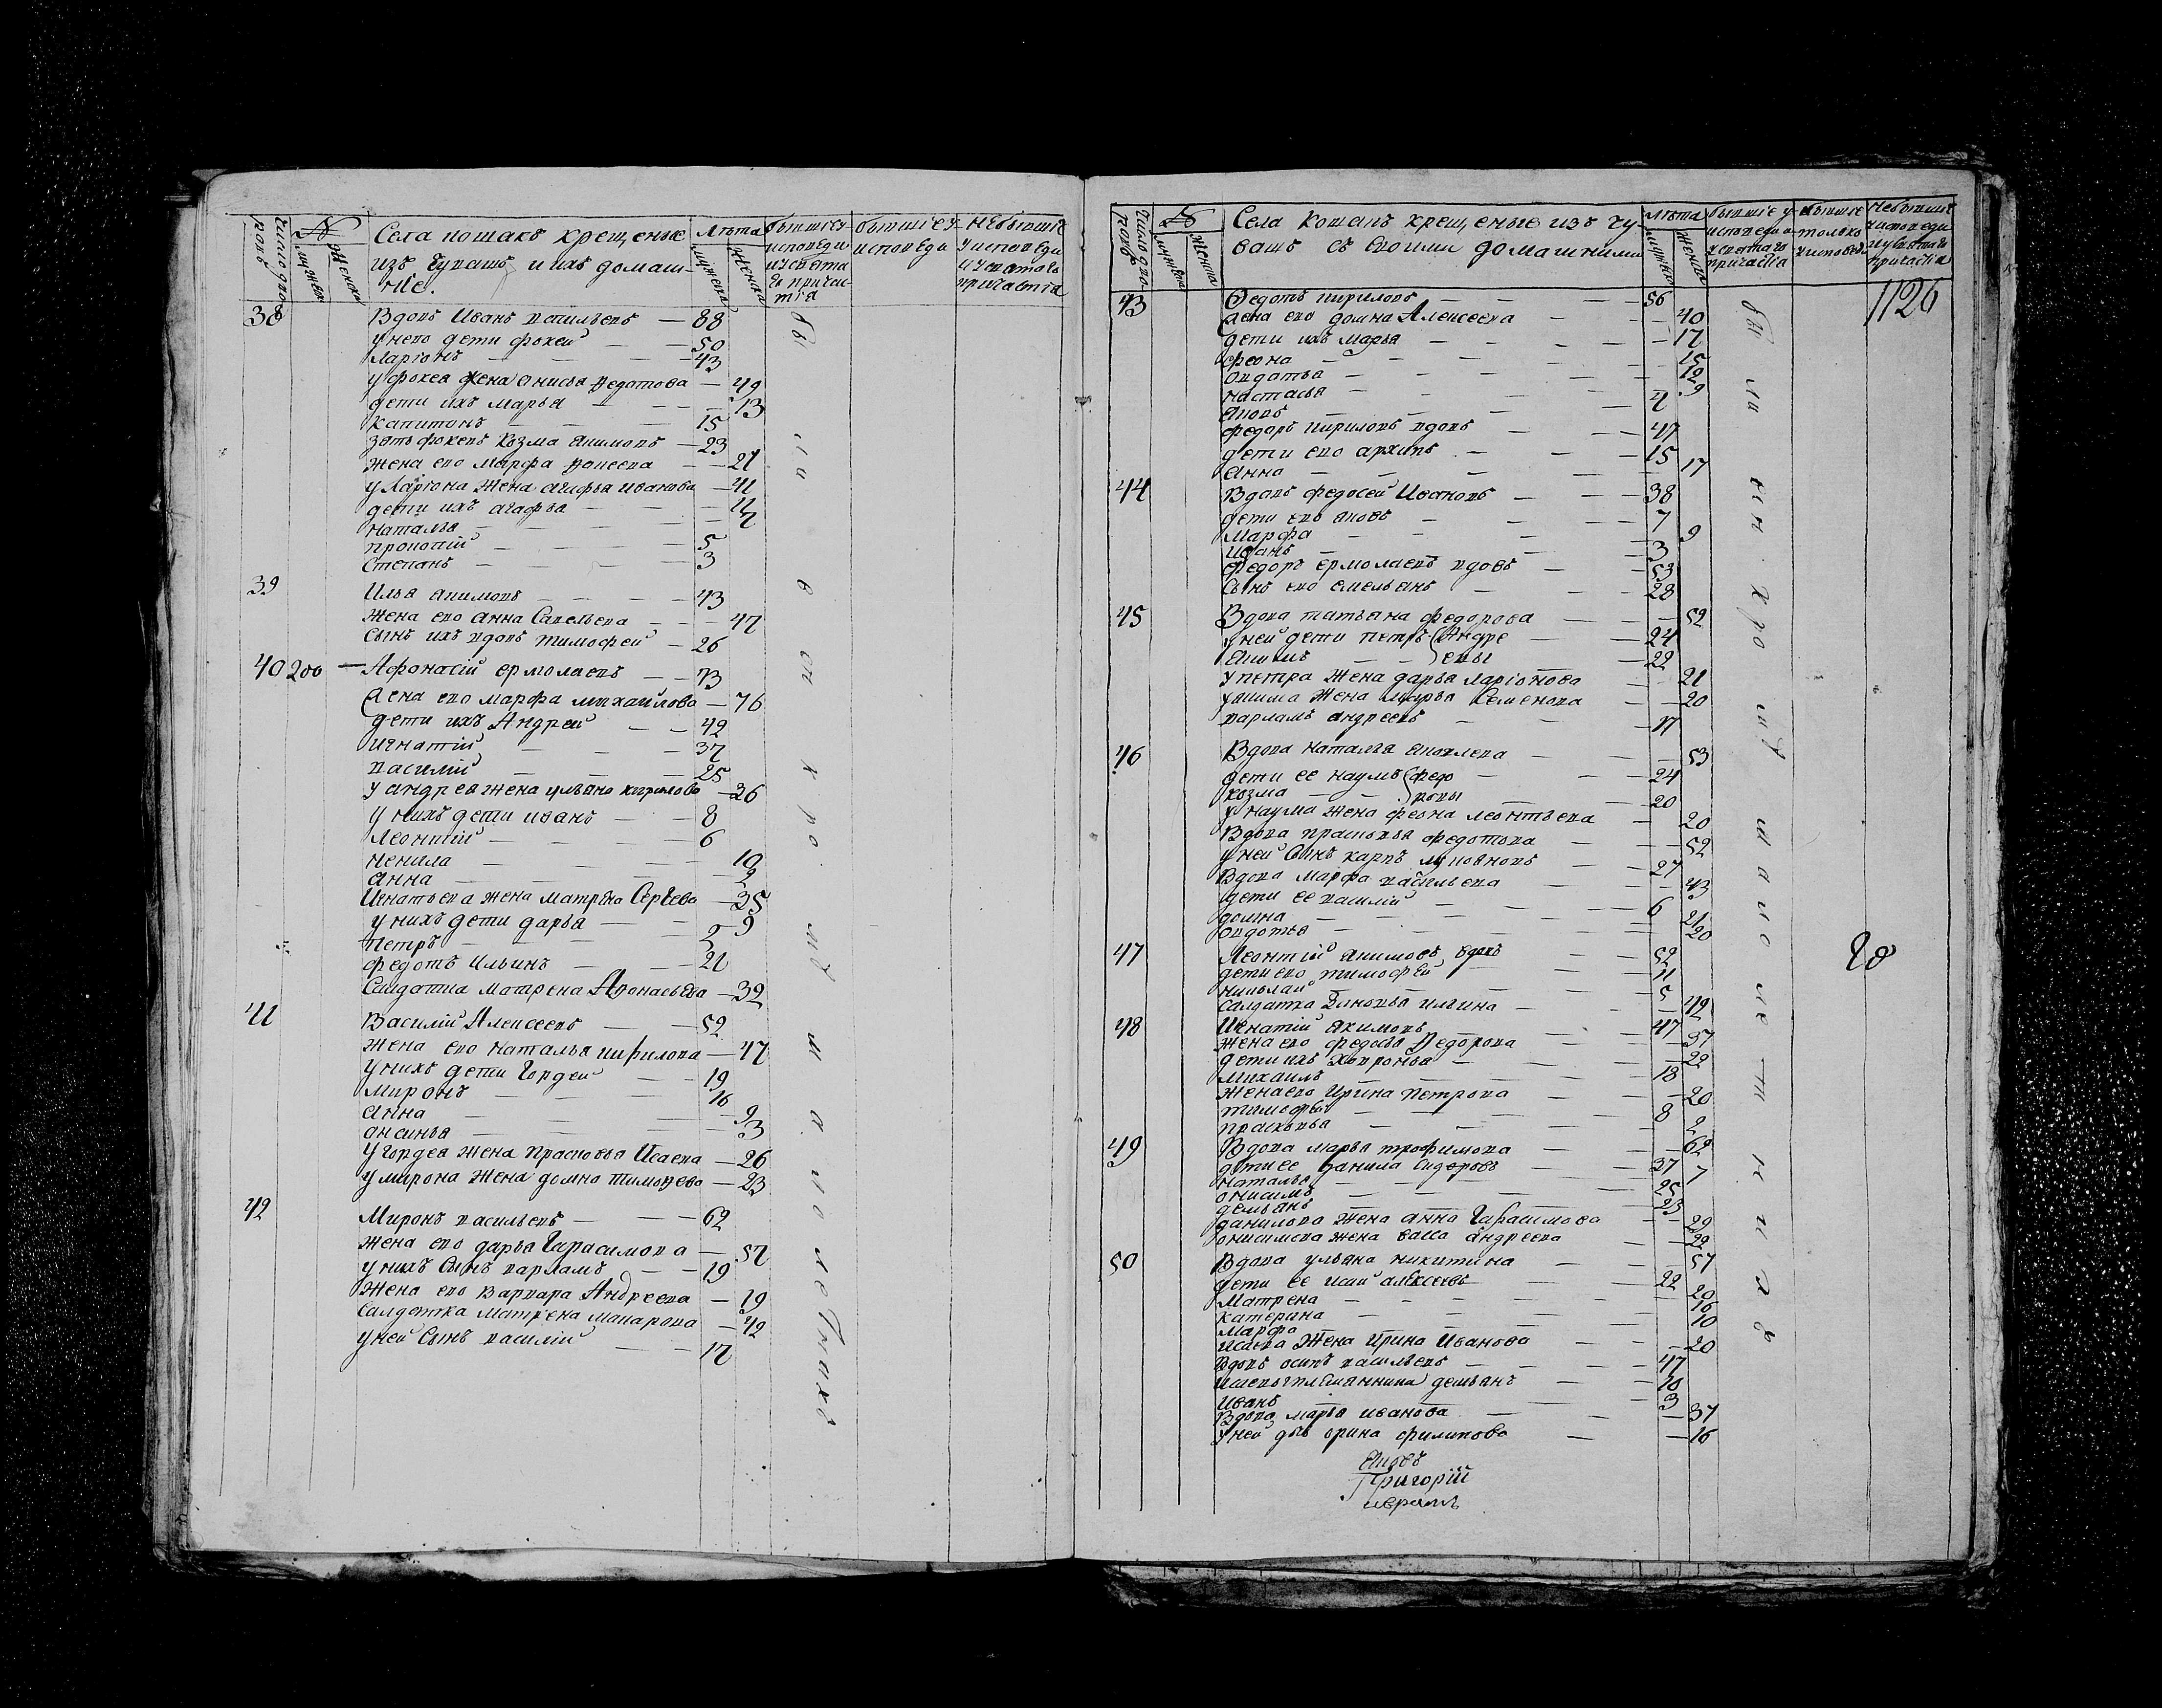 Число дворовъ
№
мужска
женска
Села кошакъ крещеные
изъ чувашъ, и ихъ домаш-
ніе.
Лѣта
мужска
женска
бывшіе у
исповеди
и у свята
го причас
тія
бывшіе у
исповеди
Небывшіе
у исповеди
и у святаго
причастія
38 Вдовъ Иванъ василъевъ — 88
у него дети фокей — — 50
Ларіонъ — — 43
у фокея жена Онисья Федотова — 49
дети ихъ Марья — — 13
Капитонъ — — 15
зять фокевъ Козма Якимовъ — 23
жена ево Марфа — — 21
у Ларіона жена Иванова — 41
дети ихъ агафья — — 11
Наталья — — 7
прокопій — — 5
Степанъ — — 3
39 Илья якимовъ — — 43
Жена ево Анна Савельева — — 47
Сынъ ихъ вдовъ тимофей — 26
40 200 — Афонасій ермолаевъ — — 73
Жена ево Марфа михаилова — 76
дети ихъ Андрей — — 42
игнатій — — 37
василій — — 25
у андрея жена ульяна — 36
у нихъ дети иванъ — — 8
Леонтій — — 6
ненила — — 10
Анна — — 2
Игнатьева жена матрена Сергѣева — 35
у нихъ дети дарья — — 9
петръ — — 5
федотъ Ильинъ — — 21
Салдатка матрена Афонасьева — 32
41 Василій Алексеевъ — — 52
жена ево наталья кирилова — 47
у нихъ дети Гордей — — 19
Миронъ — — 16
Анна — — 9
оксинья — — 3
у Гордея жена прасковья Исаева — 26
у мирона жена домна тимофева — 23
42 Миронъ василъевъ — — 62
жена ево дарья Гарасимова — 57
у нихъ Сынъ варламъ — — 19
Жена ево Варвара Андреева — 19
салдатка матрена макарова — 42
у ней Сынъ василій — — 17
Число дво-
ровъ
№
мужска
женска
Села кошакъ крещеные изъ чу-
вашъ съ своими домашними
Лѣта
мужска
женска
бывшіе у
исповеди и
у святаго
причастія
бывшіе
только
у исповеди
Небывшіе
у исповеди
и у святаго
причастія
1126
43 Федотъ кириловъ — — 56
Жена ево домна Алексеева — — 40
дети ихъ марья — — 17
феона — — 15
овдотья — — 12
настасья — — 9
яковъ — — 4
федоръ кириловъ вдовъ — — 47
дети ево архипъ — — 15
Анна — — 17
44 Вдовъ федосей Ивановъ — — 38
дети ево яковъ — — 7
Марфа — — 9
иванъ — — 3
федоръ ермолаевъ вдовъ — — 53
Сынъ ево емельянъ — — 28
45 Вдова татьяна федорова — — 52
у ней дети петръ Андре — — 24
Якимъ — — евы — 22
у петра жена дарья ларіонова — 21
у якима жена марья Семенова — — 20
варламъ андреевъ — — 11
46 Вдова наталья яковлева — — 53
дети ее наумъ федо — — 24
козма — — ровы — 20
у наума жена феона леонтьева — 20
Вдова прасковья федотова — — 52
у ней Сынъ карпъ — — 27
Вдова марфа василъева — — 43
дети ее василій — — 6
домна — — 21
овдотья — — 20
47 Леонтій якимовъ вдовъ — — 52
дети ево тимофей — — 11
николай — — 5
салдатка Зиновья ильина — — 42
20
48 Игнатій якимовъ — — 47
жена ево федосья Федорова — — 37
дети ихъ — — 22
михаилъ — — 18
жена ево Ирина петрова — — 20
тимофей — — 8
прасковья — — 2
49 Вдова марья трофимова — — 62
дети ее Данила Сидоровъ — — 37
наталья — — 7
онисимъ — — 25
демьянъ — — 23
данилова жена анна Гарасимова — — 29
онисимова жена васса андреева — — 22
50 Вдова ульяна никитина — — 57
дети ее исай алексеевъ — — 22
Матрена — — 20
катерина — — 16
Марфа — — 10
Исаева жена Ирина Иванова — — 20
Вдовъ осипъ василъевъ — — 47
племянника демьянъ — — 10
Иванъ — — 3
Вдова марья иванова — — 37
у ней дочь орина филипова — — 16
Яковъ
Григорій